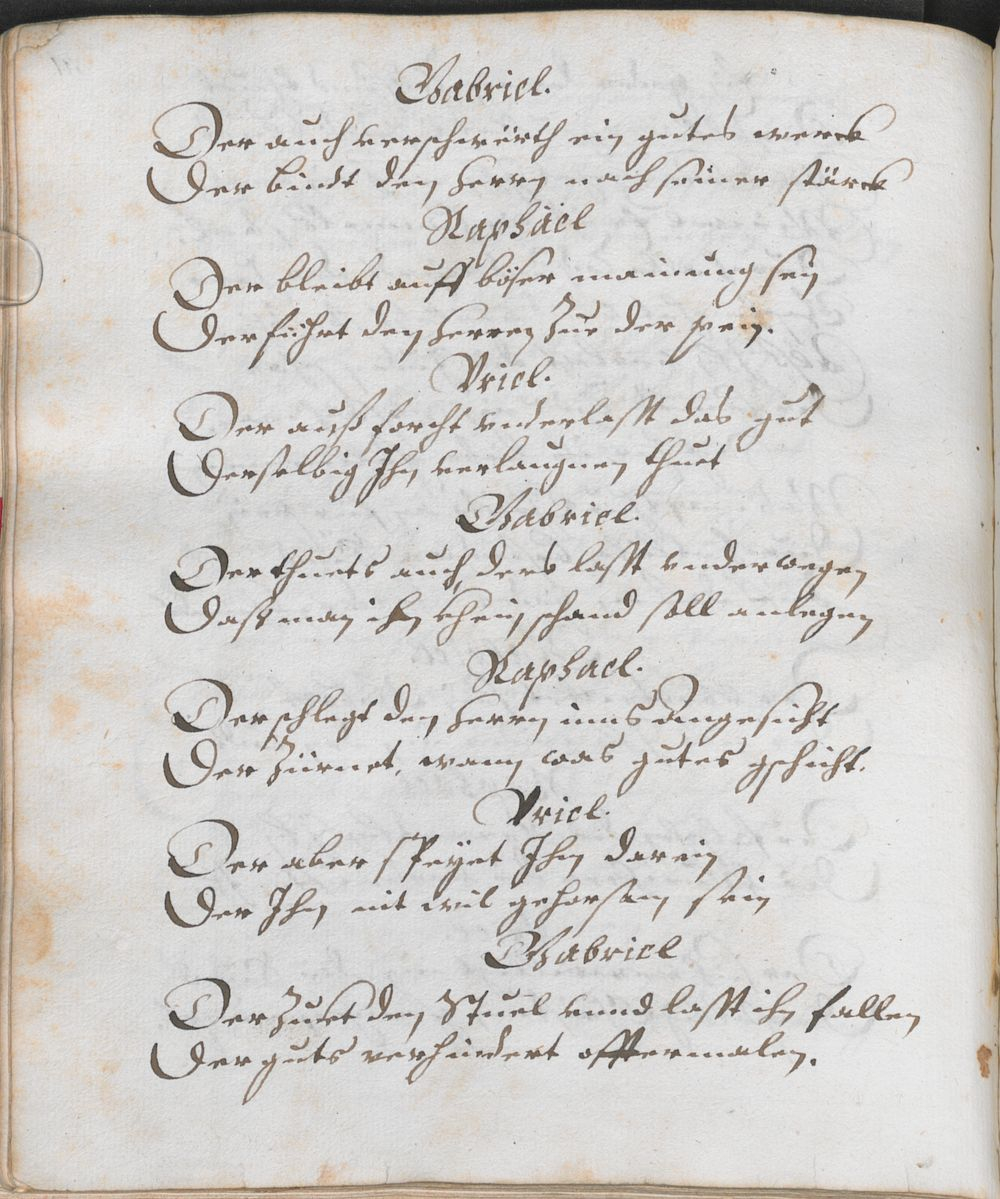 Gabriel.
Der auch verschwörth ein gutes werck
Der bindt den herrn nach seiner stärck
Raphäel
Der bleibt auff böser mainung sein
Der führt den herren zue der pein.
Vriel.
Der auß forcht vnderlasst das gut
Derselbig Ihn verlaugnen thuet
Gabriel.
Der thuets auch, ders lasst vnderwegen
Daß man ihm khein schand soll anlegen
Raphael.
Der schlegt den herrn inns angesicht
Der zürnet, wann was gutes gschicht.
Vriel.
Der aber speyet Ihm darein
Der Ihm nit wil gehorsam sein
Gabriel
Der zuckt den Stuel vnnd lasst ihn fallen
Der guts verhindert offtermalen.